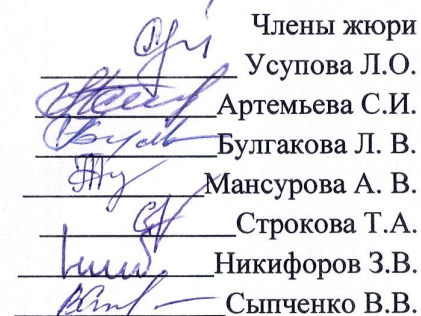 Члены жюри
Усупова Л.О.
Артемьева С.И.
Булгакова Л. В.
Мансурова А. В.
Строкова Т.А.
Никифоров З.В.
Сыпченко В.В.